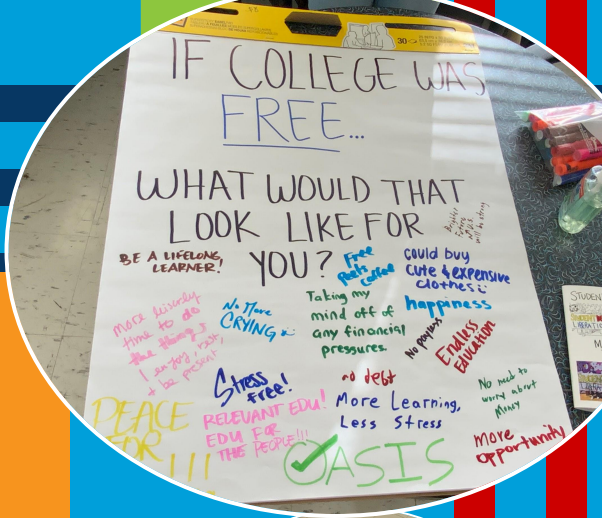 30
IF COLLEGE WAS
FREE...
WHAT WOULD THAT
LOOK LIKE FOR
YOU?
Brighter
Future
will be strong
BE A LIFELONG
LEARNER!
Free
Coffee
could buy
cute & expensive
clothes
happiness
more leisurely
time to do
the things
I enjoy, rest,
+ be present
No More
CRYING
Taking my
mind off of
any financial
pressures
No paypass
Endless
Education
Stress
free!
no debt
More Learning,
Less Stress
No need to
worry about
Money
PEACE
FOR
!!!
RELEVANT EDU!
EDU FOR
THE PEOPLE!!!
OASIS
more
opportunity
STUDEN
M